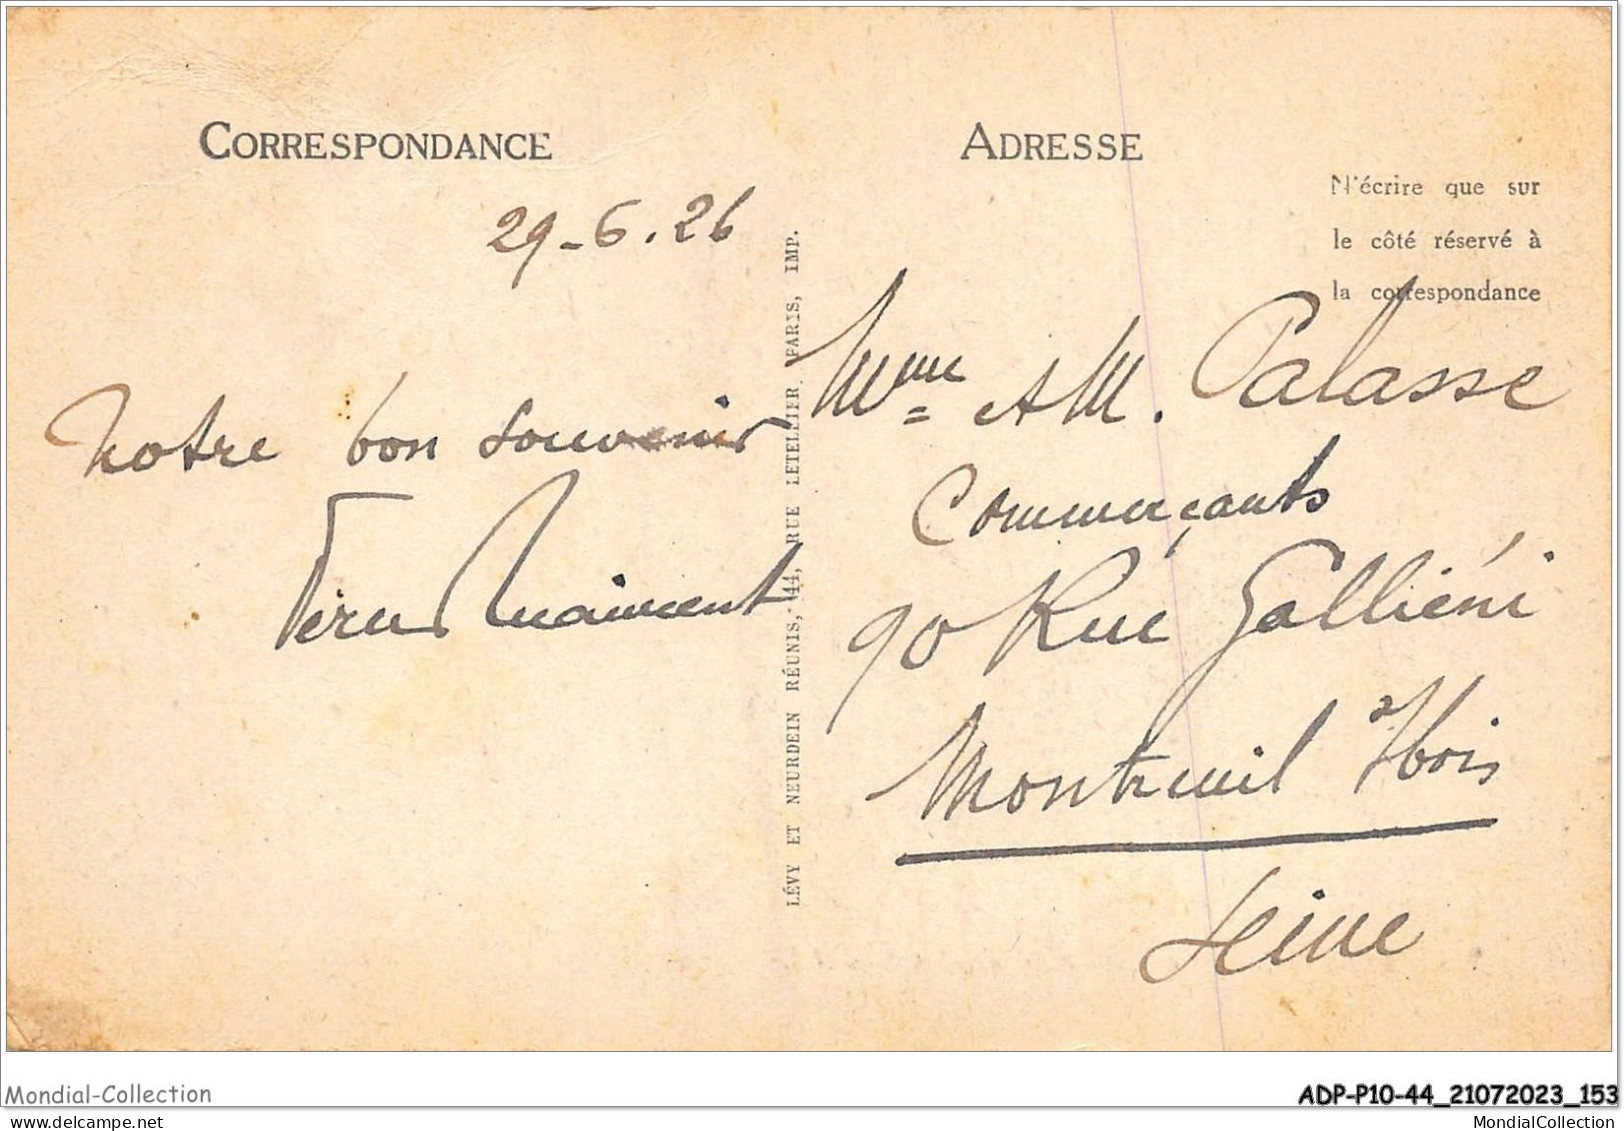 CORRESPONDANCE
29-6.26
Notre bon souvenir
LÉVY ET NEURDEIN RÉUNIS, 44, RUE LETELLIER, PARIS, IMP.
ADRESSE
N'écrire que sur
le côté réservé à
la correspondance
Mme = et M. Palasse
Commerçants
90 Rue Galliéni
Montreuil s/bois
Seine
Mondial-Collection
ADP-P10-44_21072023_153
MondialCollection